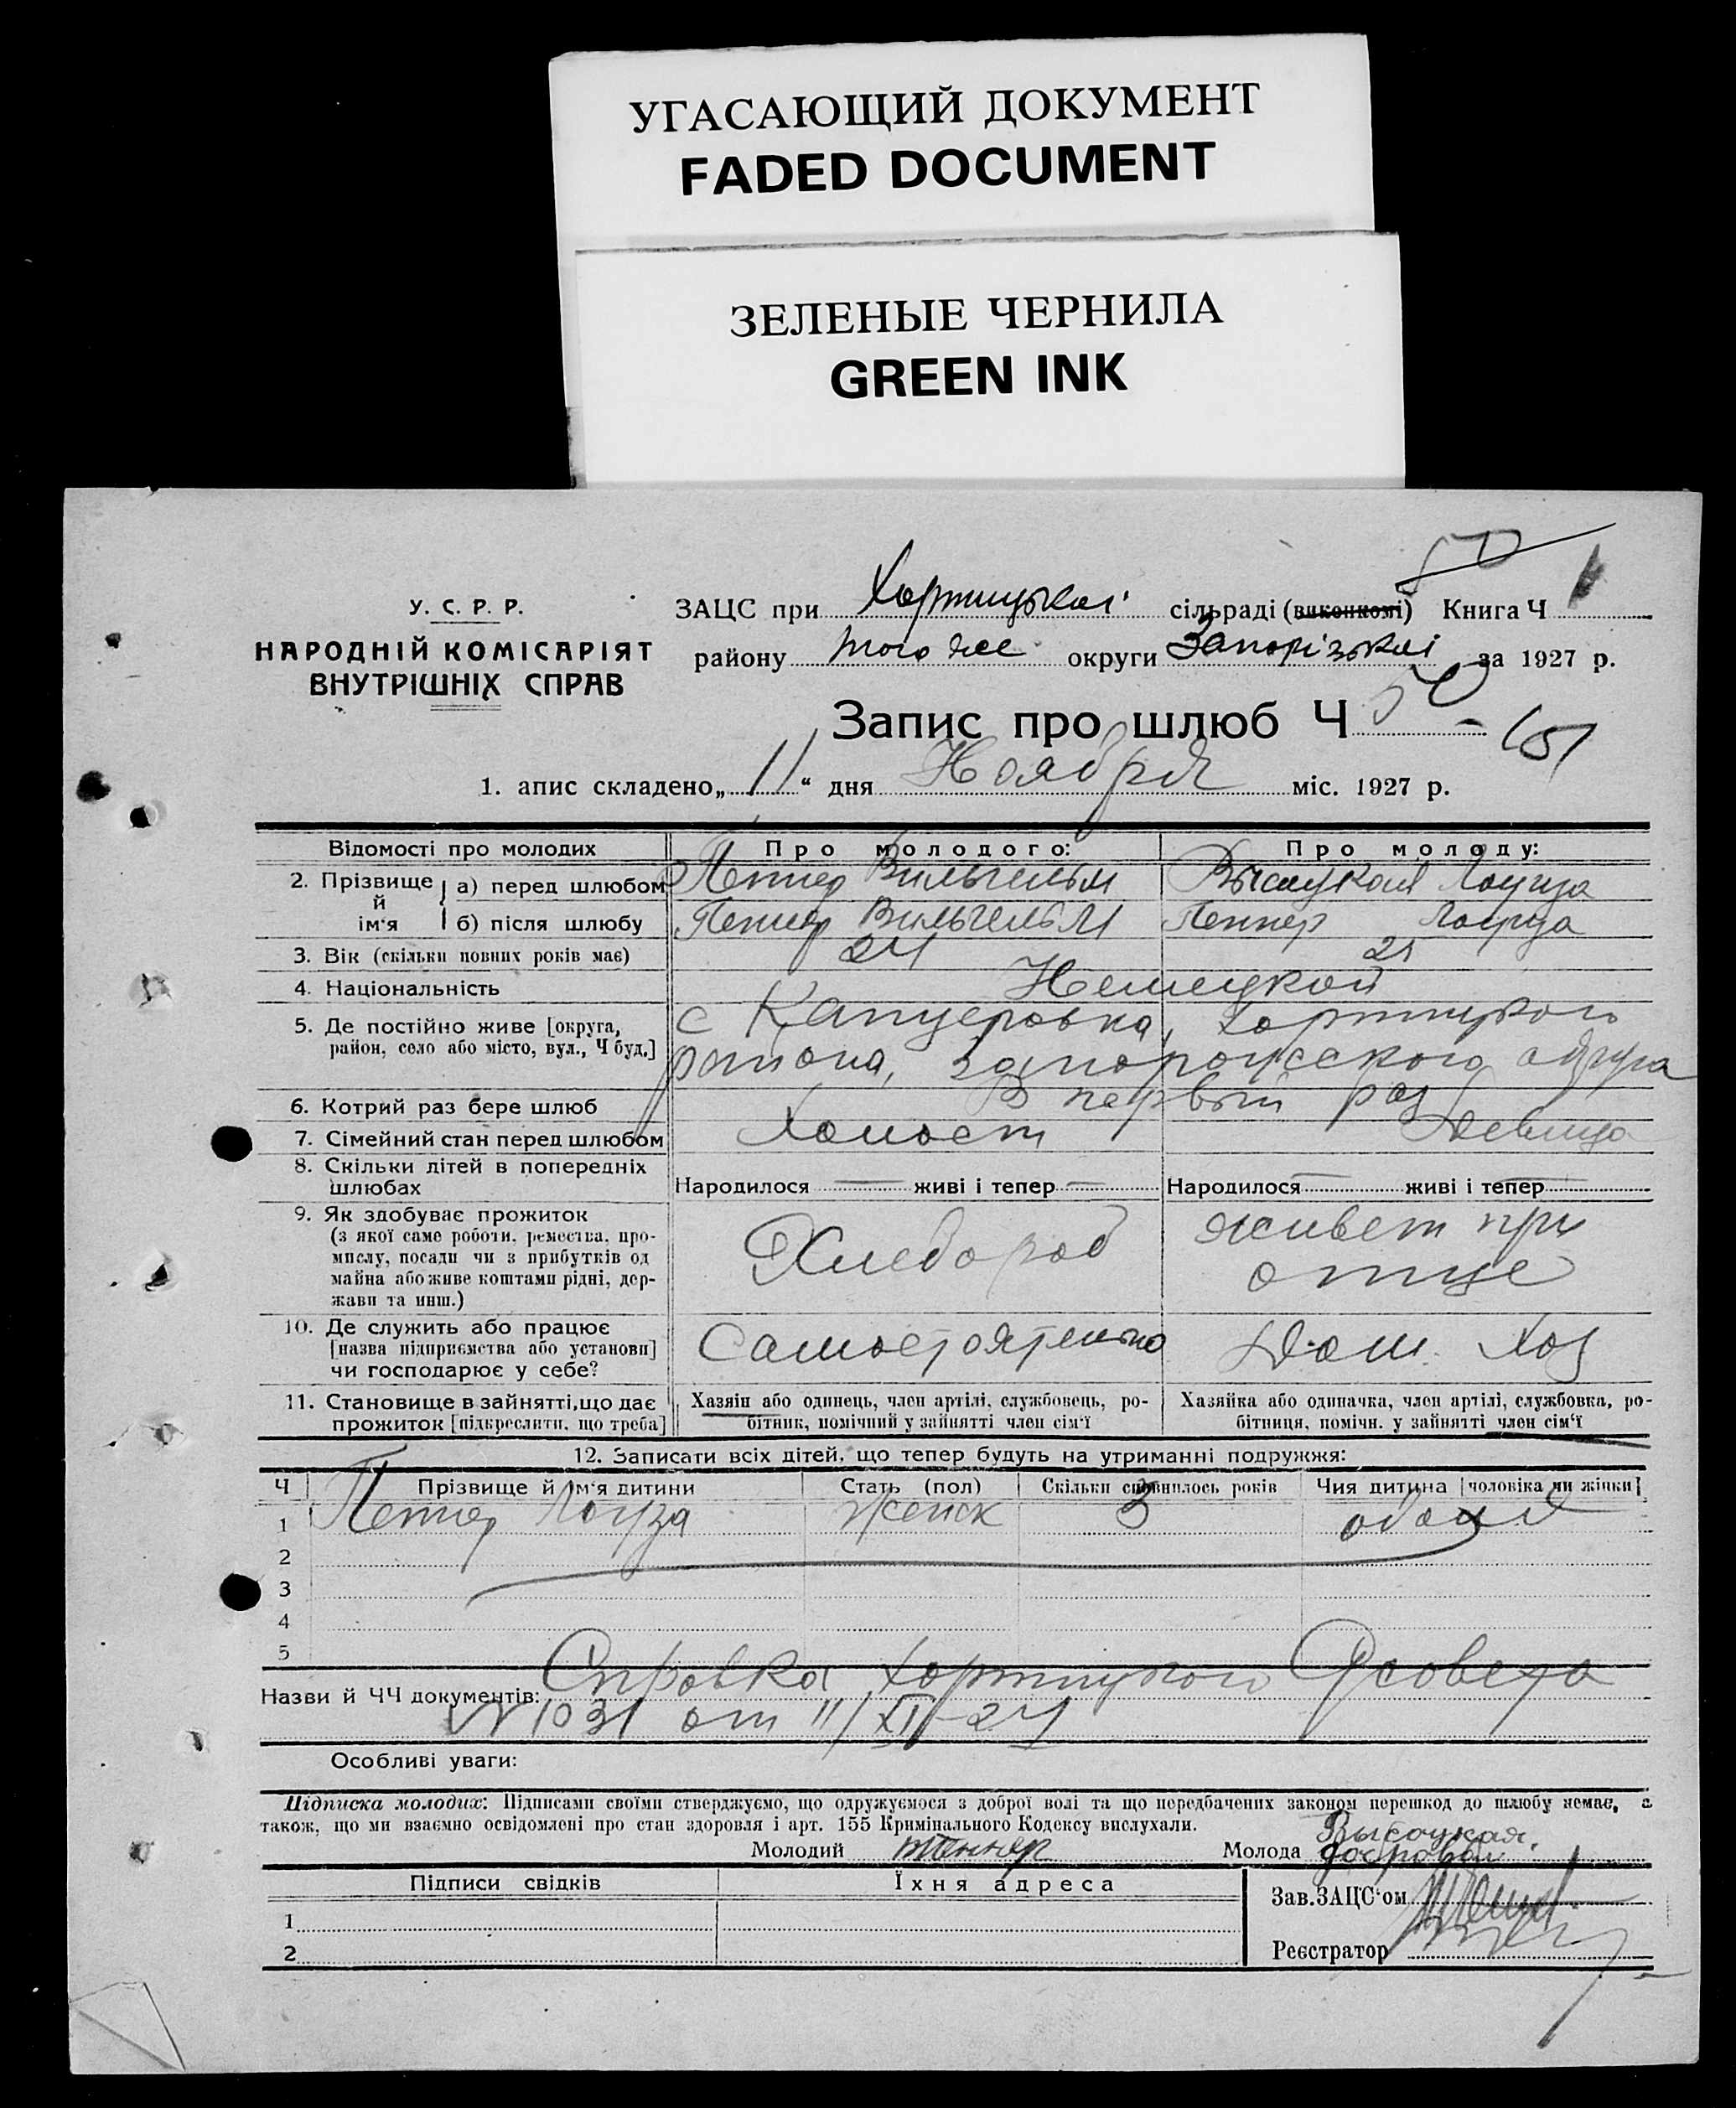 УГАСАЮЩИЙ ДОКУМЕНТ
FADED DOCUMENT
ЗЕЛЕНЫЕ ЧЕРНИЛА
GREEN INK
50
У. С. Р. Р.
НАРОДНІЙ КОМІСАРІЯТ
ВНУТРІШНІХ СПРАВ
ЗАЦС при Хортицької сільраді (виконкомі) Книга Ч 1
району того же округи Запорізької за 1927 р.
Запис про шлюб Ч 50 - 51
1. апис складено „ 11 “ дня Ноября міс. 1927 р.
Відомості про молодих Про молодого: Про молоду:
2. Прізвище й ім‘я а) перед шлюбом Петкер Вильгельм Высоцкая Лоуиза
б) після шлюбу Петкер Вильгельм Петкер Лоуиза
3. Вік (скільки повних років має) 24 21
4. Національність Немецкой
5. Де постійно живе [округа, с Канцеровка, Хортицкого
район, село або місто, вул., Ч буд.] района, Запорожского округа
6. Котрий раз бере шлюб В первый раз
7. Сімейний стан перед шлюбом Холост Девица
8. Скільки дітей в попередніх
шлюбах Народилося — живі і тепер — Народилося — живі і тепер —
9. Як здобуває прожиток
(з якої саме роботи, ремества, про-
мислу, посади чи з прибутків од
майна або живе коштами рідні, дер-
жави та инш.)
Хлебороб живет при
отце
10. Де служить або працює
[назва підприємства або установи]
чи господарює у себе?
Самостоятельно Дом. Хоз
11. Становище в зайнятті, що дає
прожиток [підкреслити, що треба]
Хазяїн або одинець, член артілі, службовець, ро-
бітник, помічний у зайнятті член сім‘ї
Хазяйка або одиначка, член артілі, службовка, ро-
бітниця, помічн. у зайнятті член сім‘ї
12. Записати всіх дітей, що тепер будуть на утриманні подружжя:
Ч Прізвище й ім‘я дитини Стать (пол) Скільки сповнилось років Чия дитина [чоловіка чи жінки]
1 Петкер Лоуиза женск 3
2
3
4
5
Назви й ЧЧ документів: Справка Хортицкого
N 1031 от 11/XI-27
Особливі уваги:
Підписка молодих: Підписами своїми стверджуємо, що одружуємося з доброї волі та що передбачених законом перешкод до шлюбу немає, а
також, що ми взаємно освідомлені про стан здоровля і арт. 155 Кримінального Кодексу вислухали.
Молодий Молода Высоцкая
Підписи свідків Їхня адреса
1
2
Зав.ЗАЦС‘ом
Реєстратор